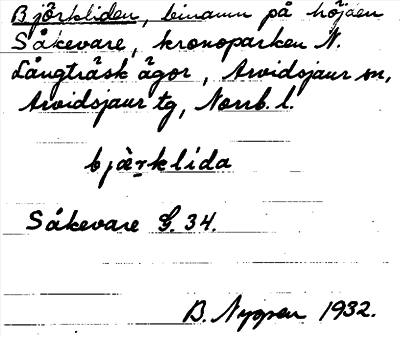 Björkliden, binamn på höjden
Såkevare, kronoparken N.
Långträsk ägor, Arvidsjaur sn,
Arvidsjaur tg, Norrb. l.
bjär̥klida
Såkevare G. 34.
B. Nygren 1932.